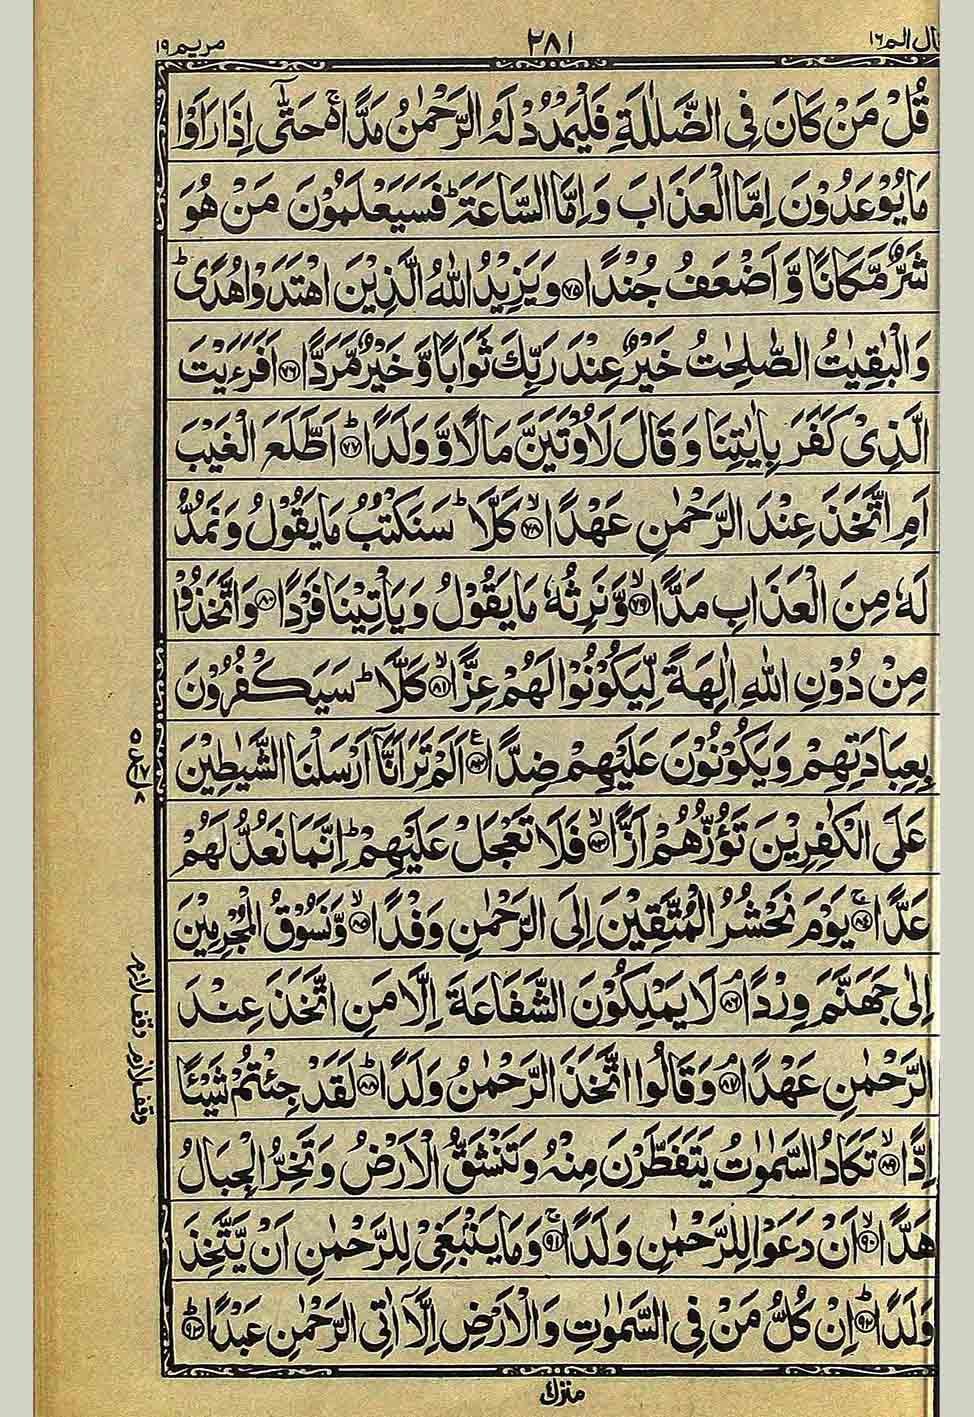 قال الم ١٦
٢٨١
مريم ١٩
قُلْ مَنْ كَانَ فِى الضَّلٰلَةِ فَلْيَمْدُدْ لَهُ الرَّحْمٰنُ مَدًّا ۚ حَتّٰٓى اِذَا رَاَوْا
مَا يُوْعَدُوْنَ اِمَّا الْعَذَابَ وَ اِمَّا السَّاعَةَ ؕ فَسَيَعْلَمُوْنَ مَنْ هُوَ
شَرٌّ مَّكَانًا وَّ اَضْعَفُ جُنْدًا ﴿٧٥﴾ وَ يَزِيْدُ اللّٰهُ الَّذِيْنَ اهْتَدَوْا هُدًى ؕ
وَ الْبٰقِيٰتُ الصّٰلِحٰتُ خَيْرٌ عِنْدَ رَبِّكَ ثَوَابًا وَّ خَيْرٌ مَّرَدًّا ﴿٧٦﴾ اَفَرَءَيْتَ
الَّذِىْ كَفَرَ بِاٰيٰتِنَا وَ قَالَ لَاُوْتَيَنَّ مَالًا وَّ وَلَدًا ؕ﴿٧٧﴾ اَطَّلَعَ الْغَيْبَ
اَمِ اتَّخَذَ عِنْدَ الرَّحْمٰنِ عَهْدًا ۙ﴿٧٨﴾ كَلَّا ؕ سَنَكْتُبُ مَا يَقُوْلُ وَ نَمُدُّ
لَهٗ مِنَ الْعَذَابِ مَدًّا ۙ﴿٧٩﴾ وَّ نَرِثُهٗ مَا يَقُوْلُ وَ يَاْتِيْنَا فَرْدًا ﴿٨٠﴾ وَ اتَّخَذُوْا
مِنْ دُوْنِ اللّٰهِ اٰلِهَةً لِّيَكُوْنُوْا لَهُمْ عِزًّا ۙ﴿٨١﴾ كَلَّا ؕ سَيَكْفُرُوْنَ
بِعِبَادَتِهِمْ وَ يَكُوْنُوْنَ عَلَيْهِمْ ضِدًّا ﴿٨٢﴾ۧ اَلَمْ تَرَ اَنَّاۤ اَرْسَلْنَا الشَّيٰطِيْنَ
عَلَى الْكٰفِرِيْنَ تَؤُزُّهُمْ اَزًّا ۙ﴿٨٣﴾ فَلَا تَعْجَلْ عَلَيْهِمْ ؕ اِنَّمَا نَعُدُّ لَهُمْ
عَدًّا ۚ﴿٨٤﴾ يَوْمَ نَحْشُرُ الْمُتَّقِيْنَ اِلَى الرَّحْمٰنِ وَفْدًا ۙ﴿٨٥﴾ وَّ نَسُوْقُ الْمُجْرِمِيْنَ
اِلٰى جَهَنَّمَ وِرْدًا ۘ﴿٨٦﴾ لَا يَمْلِكُوْنَ الشَّفَاعَةَ اِلَّا مَنِ اتَّخَذَ عِنْدَ
الرَّحْمٰنِ عَهْدًا ۘ﴿٨٧﴾ وَ قَالُوا اتَّخَذَ الرَّحْمٰنُ وَلَدًا ؕ﴿٨٨﴾ لَقَدْ جِئْتُمْ شَيْئًا
اِدًّا ۙ﴿٨٩﴾ تَكَادُ السَّمٰوٰتُ يَتَفَطَّرْنَ مِنْهُ وَ تَنْشَقُّ الْاَرْضُ وَ تَخِرُّ الْجِبَالُ
هَدًّا ۙ﴿٩٠﴾ اَنْ دَعَوْا لِلرَّحْمٰنِ وَلَدًا ۚ﴿٩١﴾ وَ مَا يَنْۢبَغِىْ لِلرَّحْمٰنِ اَنْ يَّتَّخِذَ
وَلَدًا ؕ﴿٩٢﴾ اِنْ كُلُّ مَنْ فِى السَّمٰوٰتِ وَ الْاَرْضِ اِلَّاۤ اٰتِى الرَّحْمٰنِ عَبْدًا ؕ﴿٩٣﴾
وقف لازم وقف لازم
منزل